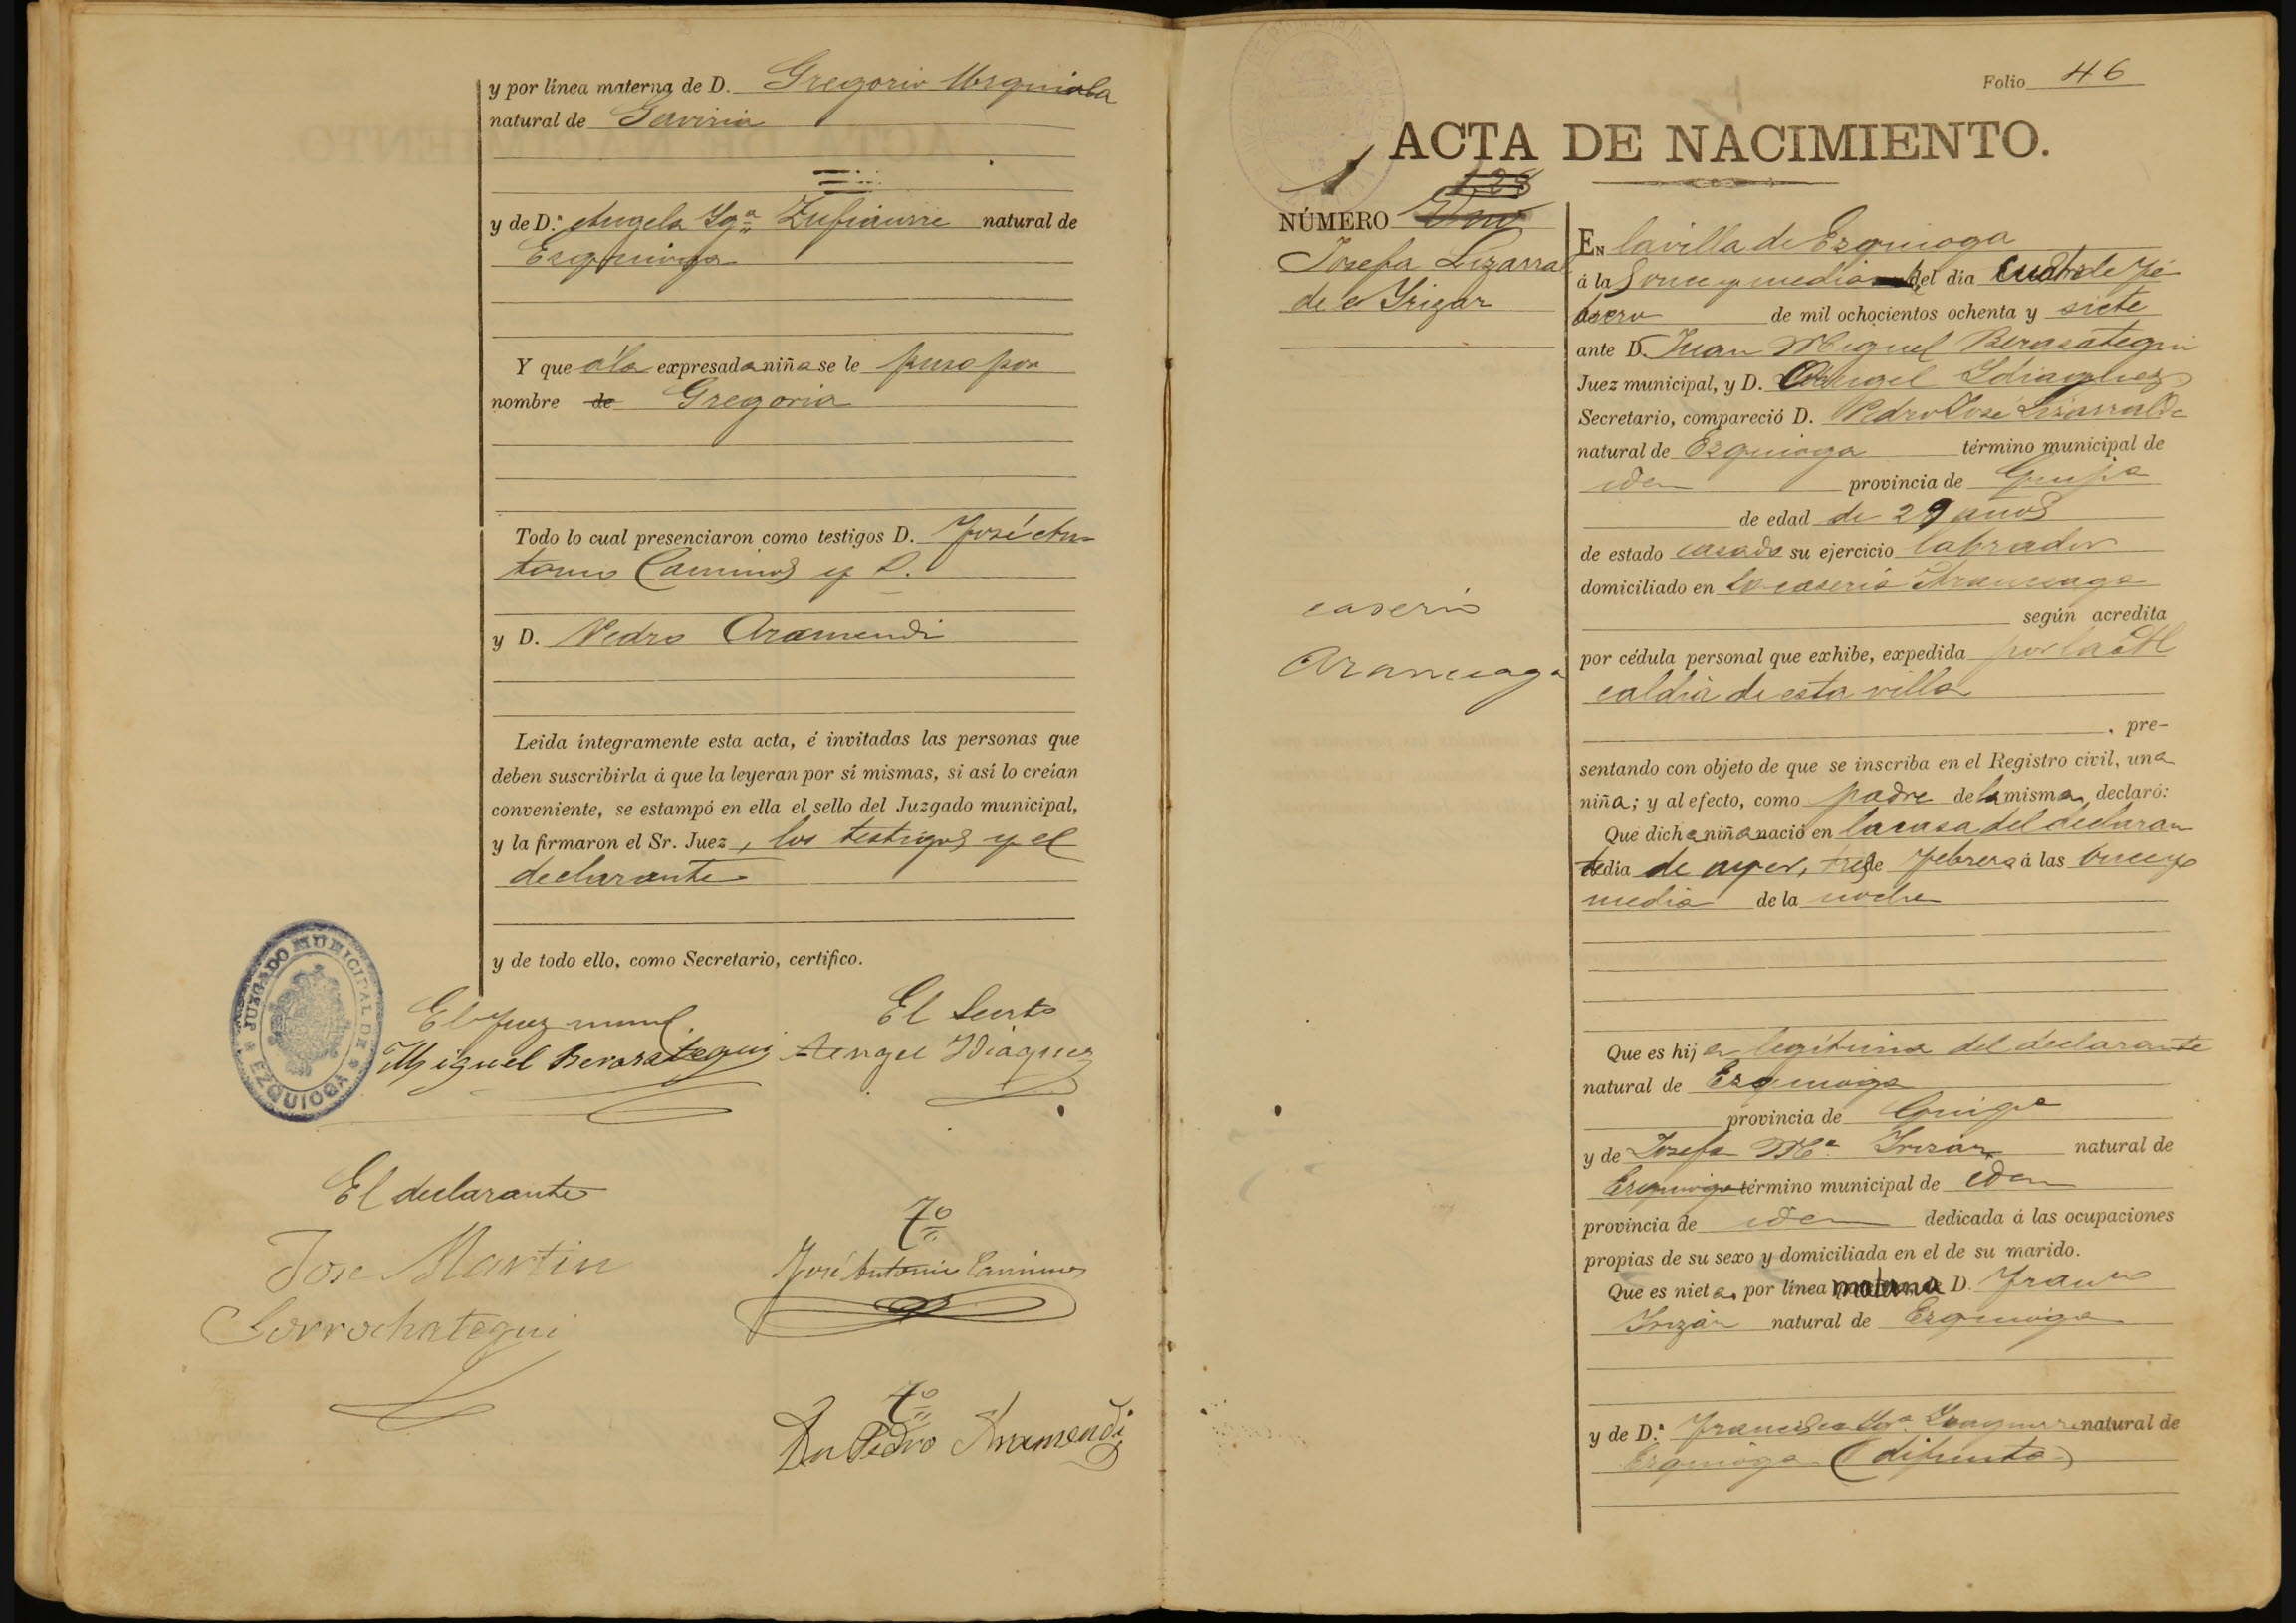 y por línea materna de D. Gregorio Urquiola
natural de Gaviria
y de D.ª Angela Ig.ª Zufiaurre natural de
Ezquioga
Y que á la expresada niña se le puso por
nombre de Gregoria
Todo lo cual presenciaron como testigos D. José An-
tonio Caminos y D.
y D. Pedro Aramendi
Leida íntegramente esta acta, é invitadas las personas que
deben suscribirla á que la leyeran por sí mismas, si así lo creían
conveniente, se estampó en ella el sello del Juzgado municipal,
y la firmaron el Sr. Juez, los testigos y el
declarante
y de todo ello, como Secretario, certifico.
JUZGADO MUNICIPAL DE EZQUIOGA
El Juez munl.
El Secrto
Miguel Berasategui
Angel Idiaquez
El declarante
Jose Martin
Sorrochategui
T.º
José Antonio Caminos
T.º
Pedro Aramendi
Folio 46
ACTA DE NACIMIENTO.
1
128
NÚMERO Uno
Josefa Lizarral
de e Yrizar
caserio
Aranceaga
EN la villa de Ezquioga
á la once y media del día cuatro de Fe
brero de mil ochocientos ochenta y siete
ante D. Juan Miguel Berasategui
Juez municipal, y D. Angel Idiaquez
Secretario, compareció D. Pedro José Lizarralde
natural de Ezquioga término municipal de
iden provincia de Guipª
de edad de 29 anos
de estado casado su ejercicio labrador
domiciliado en la caseria Aranceaga
según acredita
por cédula personal que exhibe, expedida por la Al
caldia de esta villa
, pre-
sentando con objeto de que se inscriba en el Registro civil, una
niña; y al efecto, como padre de la misma, declaró:
Que dicha niña nació en la casa del declaran
te dia de ayer, tres de Febrero á las once y
media de la noche
Que es hija legitima del declarante
natural de Ezquioga
provincia de Guipª
y de Josefa Mª Irizar natural de
Ezquioga término municipal de iden
provincia de iden dedicada á las ocupaciones
propias de su sexo y domiciliada en el de su marido.
Que es nieta, por línea materna D. Franco
Irizar natural de Ezquioga
y de D.ª Francisca Igª natural de
Ezquioga (difunta)